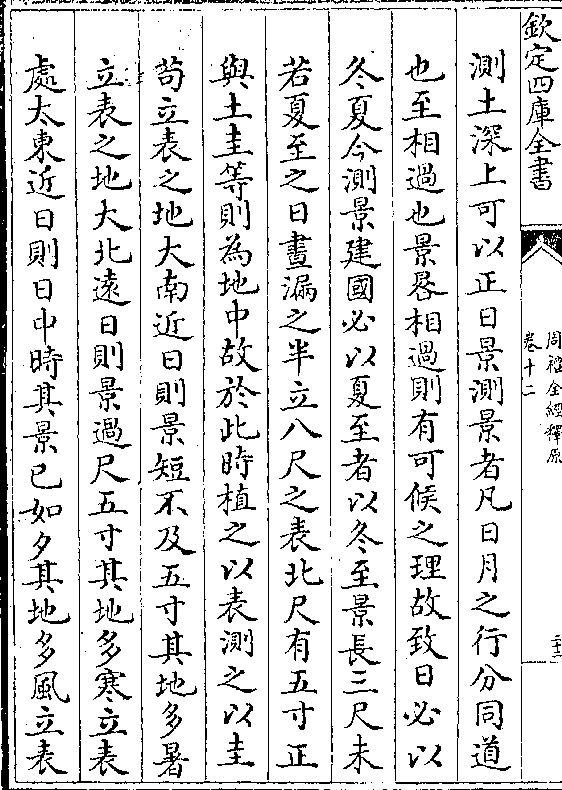 欽定四庫全書
周禮全經釋原
卷十二
測土深上可以正日景測景者凡日月之行分同道
也至相過也景晷相過則有可候之理故致日必以
冬夏今測景建國必以夏至者以冬至景長三尺未
若夏至之日晝漏之半立八尺之表北尺有五寸正
與土圭等則為地中故於此時植之以表測之以圭
茍立表之地大南近日則景短不及五寸其地多暑
立表之地大北遠日則景過尺五寸其地多寒立表
處太東近日則日中時其景已如夕其地多風立表